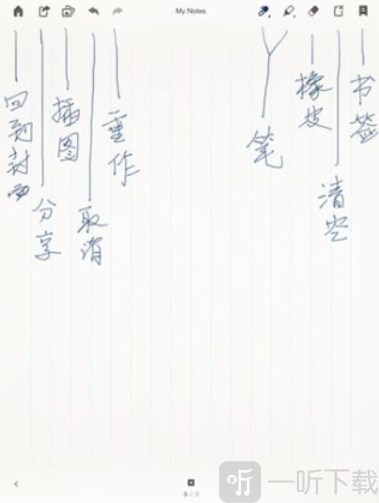 My Notes
回到封面
分享
插图
取消
重作
笔
橡皮
清空
书签
一听下载